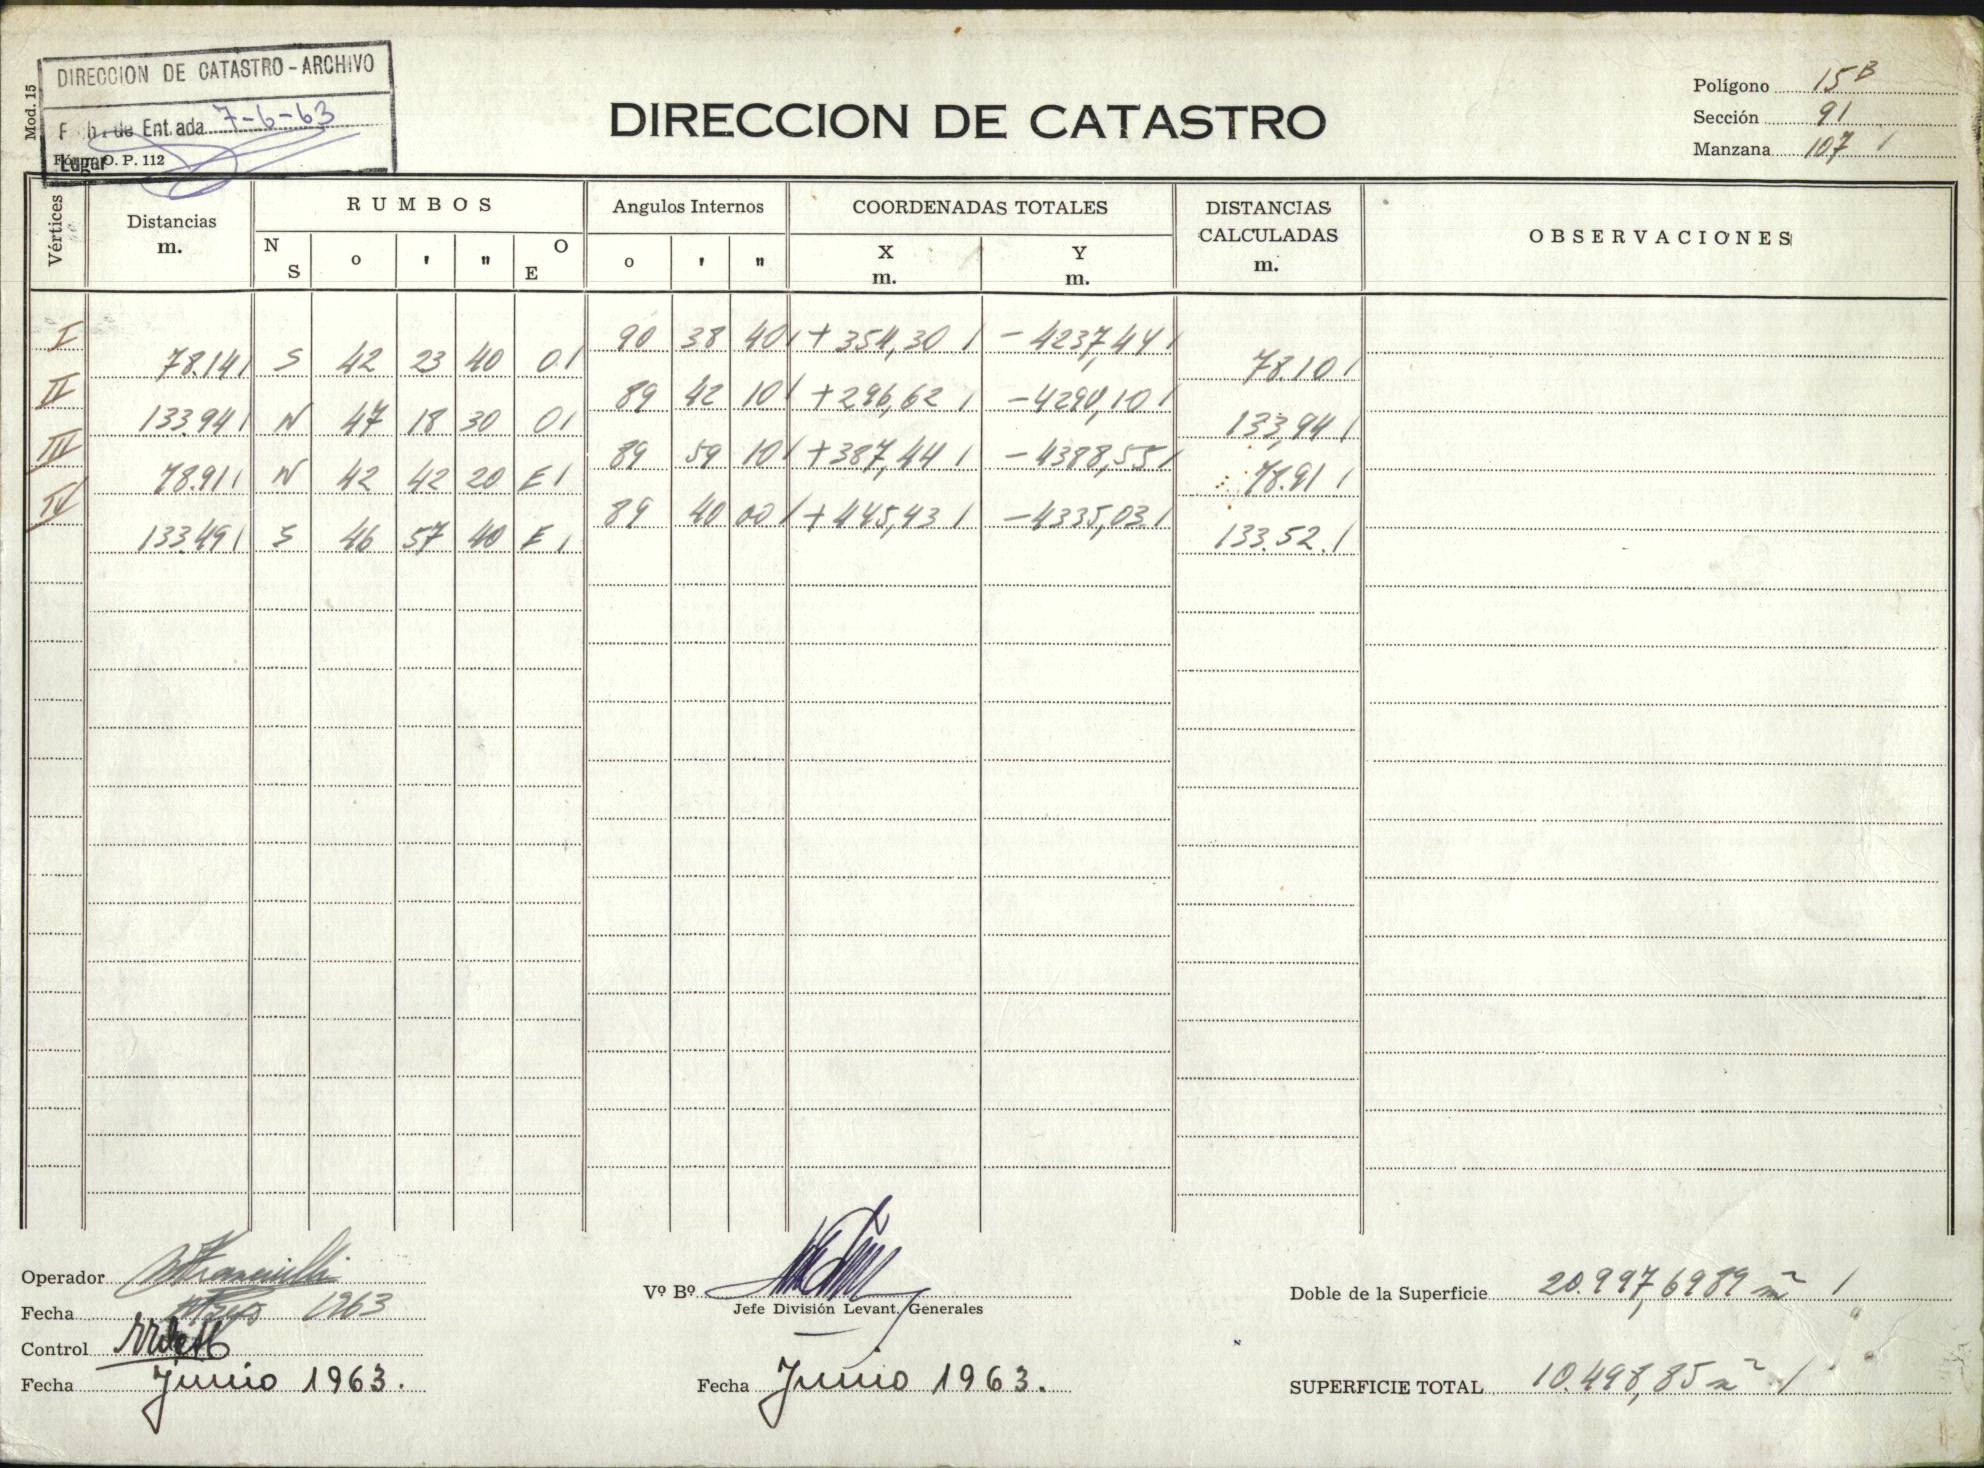 DIRECCION DE CATASTRO - ARCHIVO
Mod. 15
7-6-63
Lugar
O. P. 112
DIRECCION DE CATASTRO
Polígono 15B
Sección 91
Manzana 107
Vértices
Distancias m.
RUMBOS
N S o ' " O E
Angulos Internos
o ' "
COORDENADAS TOTALES
X m. Y m.
DISTANCIAS CALCULADAS m.
OBSERVACIONES
I 90 38 40 +354,30 -4237,44
78.14 S 42 23 40 O 78.10
II 89 42 10 +296,62 -4290,10
133.94 N 47 18 30 O 133,94
III 89 59 10 +387,44 -4388,55
78.91 N 42 42 20 E 78.91
IV 89 40 00 +445,43 -4335,03
133.49 S 46 57 40 E 133.52
Operador
Fecha 1963
Control
Fecha Junio 1963.
Vº Bº
Jefe División Levant. Generales
Fecha Junio 1963.
Doble de la Superficie 20.997,6989 m²
SUPERFICIE TOTAL 10.498,85 m²